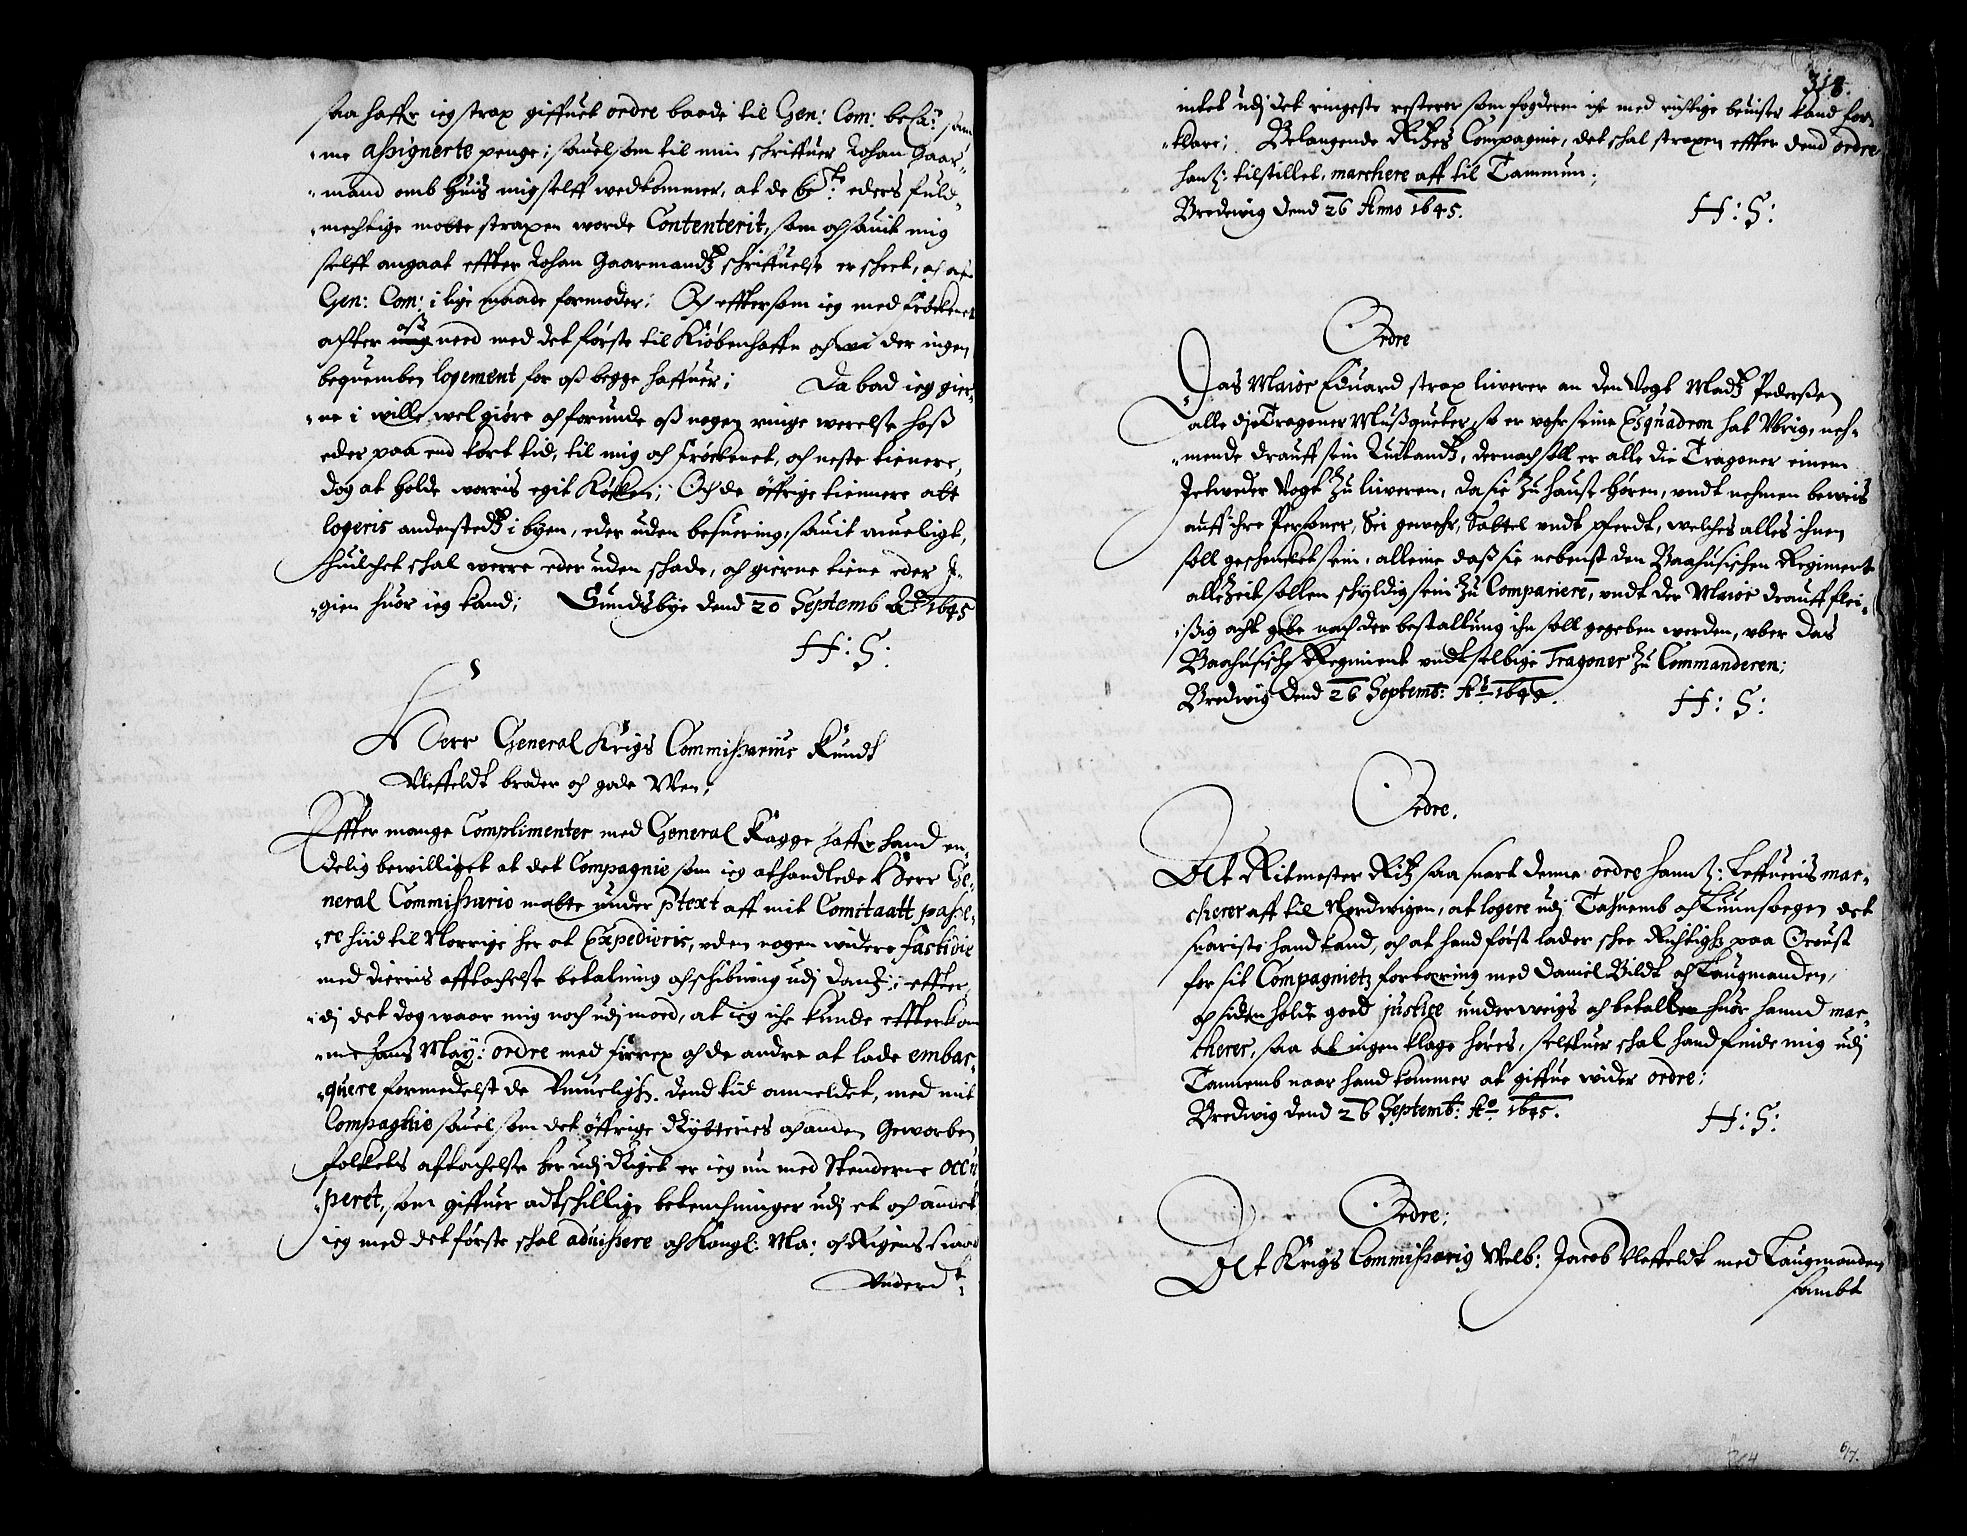 saa haffr ieg strax giffuet ordre baade til Gen: Com: besa: sam
me assignerte penge; sauel som til min skriffuer Johan Gaar-
mand omb huis mig selff wedkommer, at de be:te eders full-
mechtige motte straxen worde Contenterit, som och sauit mig
selff angaat effter Johan Gaarmandtz schriffuelse er skeet, och aff
Gen: Com: i lige maade formoder; Och effter som ieg med frøckenet
achter oß need med det første til Kiøbenhaffn och wi der ingen
bequemben logement for oß begge haffuer; Da bad ieg gier-
ne i wille wel giøre och forunde oß nogen ringe werelse hoß
eder paa end kort tid, til mig och frøckenet, och neste tienere,
dog at holde worris egit Køcken; Och de øffrige tiennere att
logeris anderstedtz i byen, eder uden besuering, sauit mueligt,
huilchet skal werre eder uden skade, och gierne tiene eder i-
gien huor ieg kand; Sundsbye dend 20 Septemb Ao 1645
H: S:
Herr General Krigs Commissarius Knudt
Vleffeldt broder och gode Wen,
Effter mange Complimenter med General Kagge haffr hand en-
delig bewilliget at det Compagnie som ieg afhandlede Herr Ge-
neral Commissario motte under ptext aff mit Comitaatt passe-
re hiid til Norrige her at Expedieris, uden nogen widere fastidie
med dieris afftachelse betalning och schibning udj Dantz; effter-
dj det dog waar mig noch udj moed, at ieg iche kunde effterkom
me hans May: ordre med firrex och de andre at lade embar-
quere formedelst de Vmueligh. dend tid anmeldet, med mit
Compagnie sauel som det øffrige Rytteries och anden Geworben
folckets aftachelse her udj Riget er ieg nu med Stenderne occu
peret, som giffuer adtskillige betenchninger udj et och andet
ieg med det første skal aduissere och Kongl: Ma: och Rigens Raad
Vnderd:t
318.
intet udj det ringeste resterer som fogderen iche med richtige beuiser kand for-
klare; Belangende Ritzes Compagnie, det skal straxen effter dend ordre
hanß: tilstillet, marchere aff til Tammun;
Bredwig dend 26 Anno 1645.
H: S:
Ordre
Das Maior Eduard strax liuerer an den Vogt Madtz Pederßen
alle die Tragoner Mußqueter, so er vohr seine Esquadron hat Vbrig, neh-
mende drauff sein Quitandtz, dernach soll er alle die Tragoner einem
Jetweder Vogt zu liueren, da sie zu hauße hören, vndt nehmen beweis
auff ihre Personer, Sei gewehr, Sabtel vndt pferdt, welches alles ihnen
soll geschencket sein, alleine daß sie nebenst den Baahusischen Regiment
allezeit sollen schyldig sein zu Compariere, vndt der Maior drauff flei-
ßig acht gebe nach der bestallung ihn soll gegeben werden, vber das
Baahusische Regiment vndt selbige Tragoner zu Commanderen;
Bredwig dend 26 Septemb: Ao 1645.
H: S:
Ordre.
At Ritmester Ritz saa snart denne ordre hannß: leffueris mar-
cherer aff til Nordwigen, at logere udj Tahnemb och Quunsogen det
snariste hand kand, och at hand først lader skee Richtigh paa Oroust
for sit Compagnietz fortæring med Daniel Bildt och Laugmanden,
och siden holde goed justice underweigs och betaller huor hannd mar-
cherer, saa at ingen klage høres, selffuer skal hand finde mig udj
Tannemb naar hand kommer at giffue wider ordre:
Bredwig dend 26 Septemb: Ao 1645.
H: S:
Ordre:
At Krigs Commissarig Welb: Jacob Vleffeldt med Laugmanden
sambt